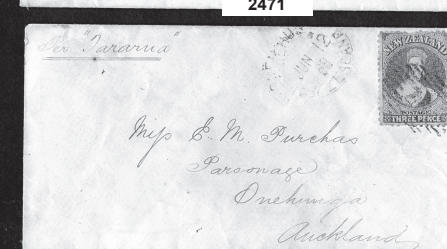 2471
Per "Tararua"
JUN 12
NEW ZEALAND
POSTAGE
THREE PENCE
Miss E. M. Purchas
Parsonage
Onehunga
Auckland